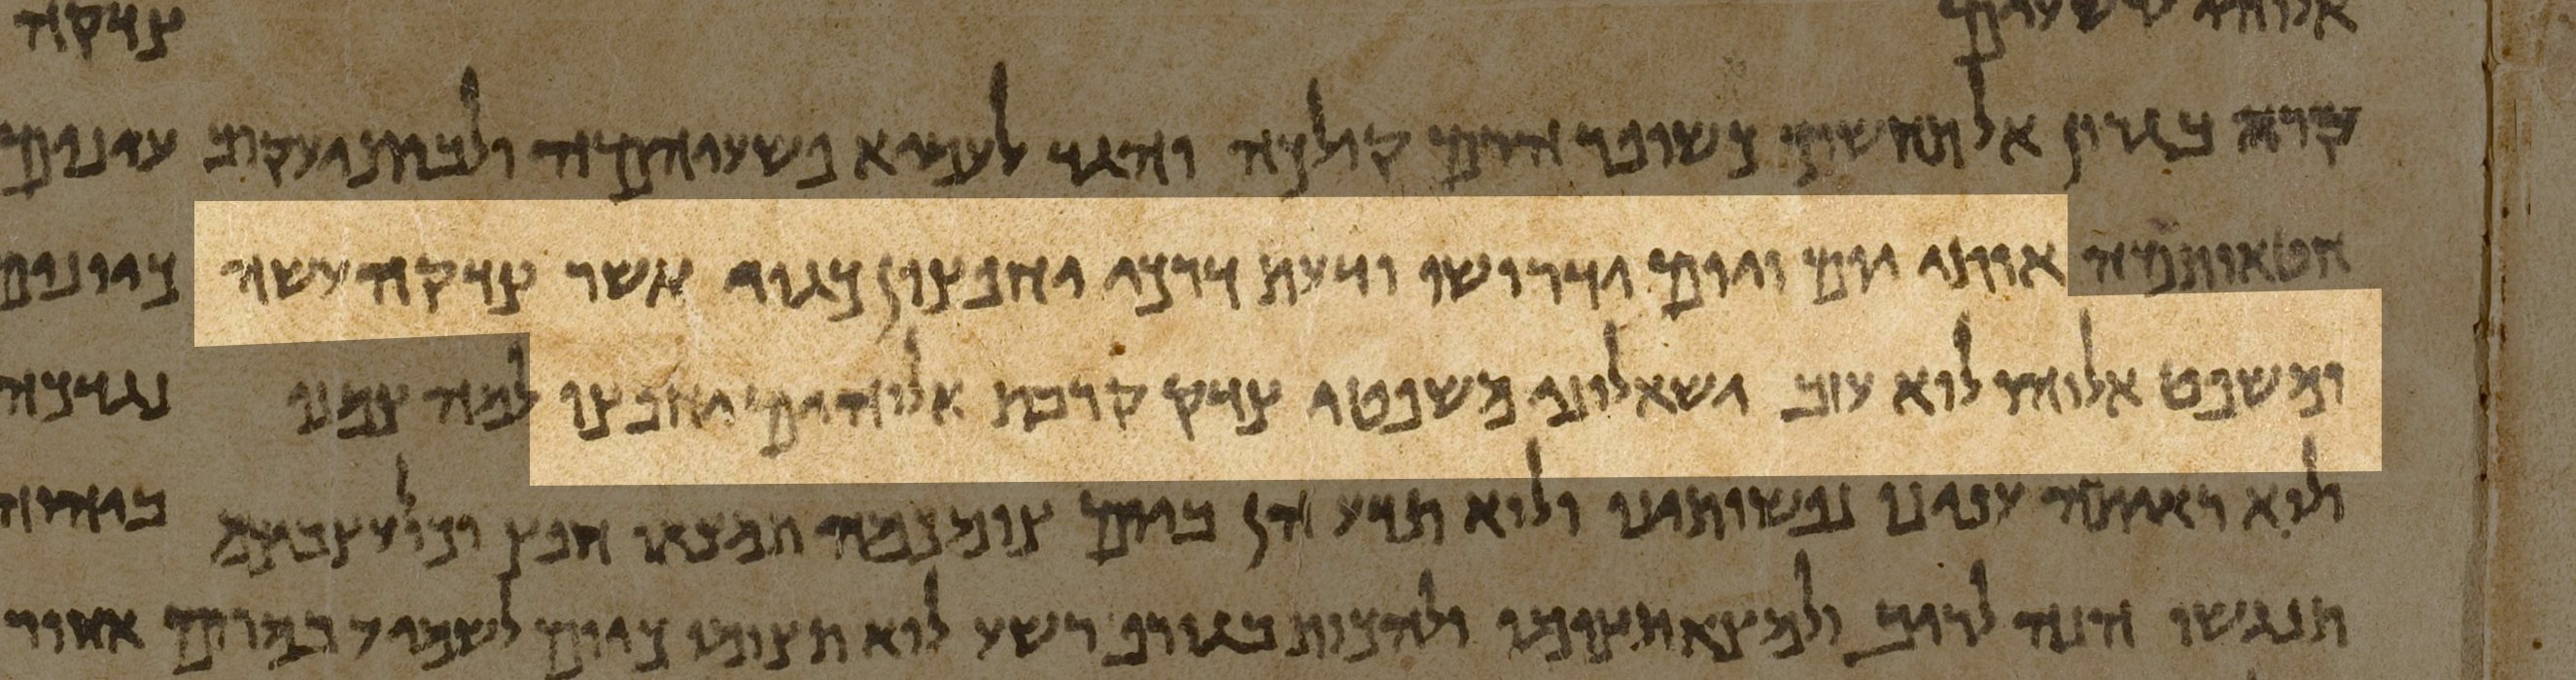 אלוהי לרשעים
קרא בגרון אל תחשוך כשופר הרים קולכה והגד לעמיא פשעיהמה ולבית יעקוב
חטאותמה אותי יום ויום ידרושו ודעת דרכי יחפצון כגוי אשר צדקה עשה
ומשפט אלוהיו לוא עזב ישאלוני משפטי צדק קרבת אלוהים יחפצו למה צמנו
ולוא ראיתה ענינו נפשותינו ולוא תדע הן ביום צומכמה תמצאו חפץ וכול עצביכמה
תנגשו הנה לריב ולמצא תצומו ולהכות בגורף רשע לוא תצומו כיום לשמיע במרום
צדקה
עינים
כיונים
נגדכה
אחור